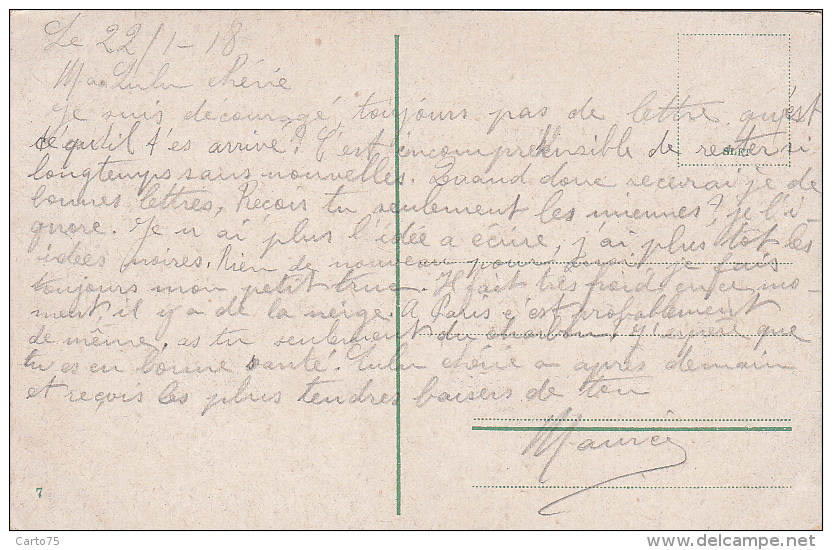 Le 22/1-18
Ma Lulu chérie
Je suis découragé, toujours pas de lettre qu'est
ce qu'il t'es arrivé? C'est incompréensible de rester si
longtemps sans nouvelles. Quand donc recevrai je de
bonnes lettres, Reçois tu seulement les miennes? je l'i-
gnore. Je n'ai plus l'idée a écrire, j'ai plus tot les
idées noires. Rien de nouveau pour moi, je fais
toujours mon petit truc. Il fait très froid en ce mo-
ment, il y a de la neige. A Paris c'est probablement
de même, as tu seulement du charbon, j'espère que
tu es en bonne santé. Lulu chérie a après demain
et reçois les plus tendres baisers de ton
Maurice
7
Carto75
www.delcampe.net